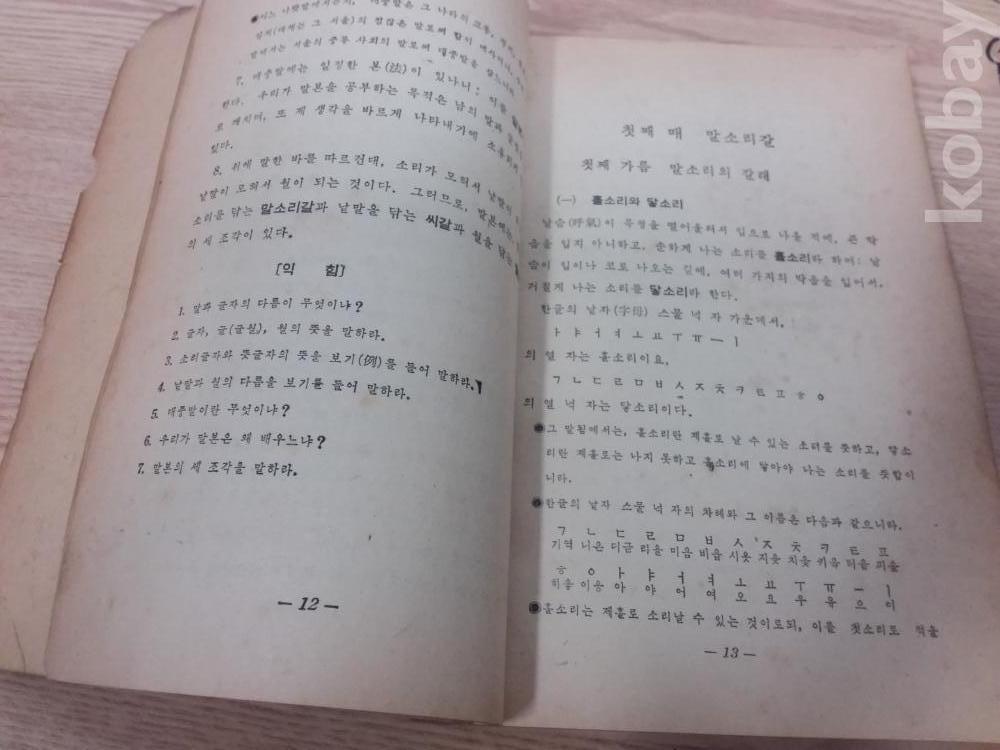 ●어느 나랏말에서든지, 대중말은 그 나라의 교통,
정치(에서는 그 서울)의 점잖은 말로써
말에서는 서울의 중류 사회의 말로써 대중말을 삼느니라
7. 대중말에는 일정한 본(法)이 있나니; 이를
한다. 우리가 말본을 공부하는 목적은 남의 말과 글을
로 깨치며, 또 제 생각을 바르게 나타내기에
있다.
8. 위에 말한 바를 따르건대, 소리가 모혀서 낱말이
낱말이 모혀서 월이 되는 것이다. 그러므로, 말본에는,
소리를 닦는 말소리갈과 낱말을 닦는 씨갈과 월을 닦는
의 세 조각이 있다.
[익 힘]
1. 말과 글자의 다름이 무엇이냐?
2. 글자, 글(글월), 월의 뜻을 말하라.
3. 소리글자와 뜻글자의 뜻을 보기(例)를 들어 말하라.
4. 낱말과 월의 다름을 보기를 들어 말하라.
5. 대중말이란 무엇이냐?
6. 우리가 말본은 왜 배우느냐?
7. 말본의 세 조각을 말하라.
— 12 —
첫째 매 말소리갈
첫째 가름 말소리의 갈래
(一) 홀소리와 닿소리
날숨(呼氣)이 목청을 떨어울려서 입으로 나올 적에, 큰 막
음을 입지 아니하고, 순하게 나는 소리를 홀소리라 하며: 날
숨이 입이나 코로 나오는 길에, 여러 가지의 막음을 입어서,
거칠게 나는 소리를 닿소리라 한다.
한글의 낱자(字母) 스물 넉 자 가운데서,
ㅏ ㅑ ㅓ ㅕ ㅗ ㅛ ㅜ ㅠ ㅡ ㅣ
의 열 자는 홀소리이요,
ㄱ ㄴ ㄷ ㄹ ㅁ ㅂ ㅅ ㅈ ㅊ ㅋ ㅌ ㅍ ㅎ ㅇ
의 열 넉 자는 닿소리이다.
●그 말됨에서는, 홀소리란 제홀로 날 수 있는 소리를 뜻하고, 닿소
리란 제홀로는 나지 못하고 홀소리에 닿아야 나는 소리를 뜻함이
니라.
●한글의 낱자 스물 넉 자의 차례와 그 이름은 다음과 같으니라.
ㄱ ㄴ ㄷ ㄹ ㅁ ㅂ ㅅ ㅈ ㅊ ㅋ ㅌ ㅍ
기역 니은 디귿 리을 미음 비읍 시옷 지읒 치읓 키읔 티읕 피읖
ㅎ ㅇ ㅏ ㅑ ㅓ ㅕ ㅗ ㅛ ㅜ ㅠ ㅡ ㅣ
히읗 이응 아 야 어 여 오 요 우 유 으 이
●홀소리는 제홀로 소리날 수 있는 것이로되, 이를 첫소리로 적을
— 13 —
kobay